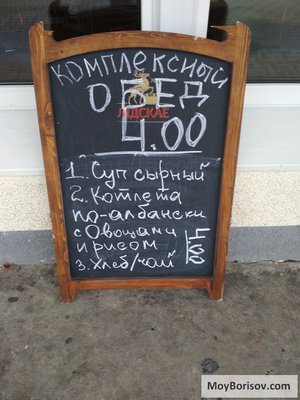 комплексный
ОБЕД
ЛІДСКАЕ
4.00
1. Суп сырный
2. Котлета
по-албански
с овощами
и рисом
4.00
3. Хлеб/чай
MoyBorisov.com